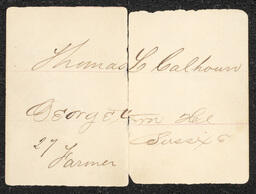 Thomas L Calhoun
Georgetown Del
Sussix
27
Farmer